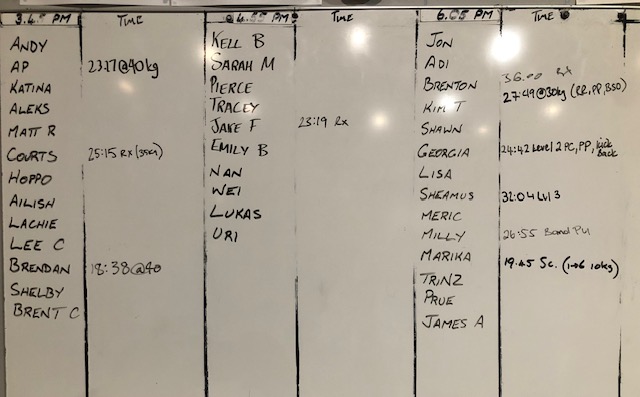 3.45 PM TIME
ANDY
AP 23:17@40kg
KATINA
ALEKS
MATT R
COURTS 25:15 RX (35kg)
HOPPO
AILISH
LACHIE
LEE C
BRENDAN 18:38@40
SHELBY
BRENT C
4.55 PM TIME
KELL B
SARAH M
PIERCE
TRACEY
JAKE F 23:19 Rx
EMILY B
NAN
WEI
LUKAS
URI
6.05 PM TIME
JON
ADI
36.00 Rx
BRENTON 27:49@30kg (RR, PP, BSO)
KIM T
SHAWN
GEORGIA 24:42 Level 2 PC, PP, kick back
LISA
SHEAMUS 32:04 Lvl 3
MERIC
MILLY 26:55 Band PU
MARIKA 19:45 Sc. (1→6 10kg)
TRINZ
PRUE
JAMES A